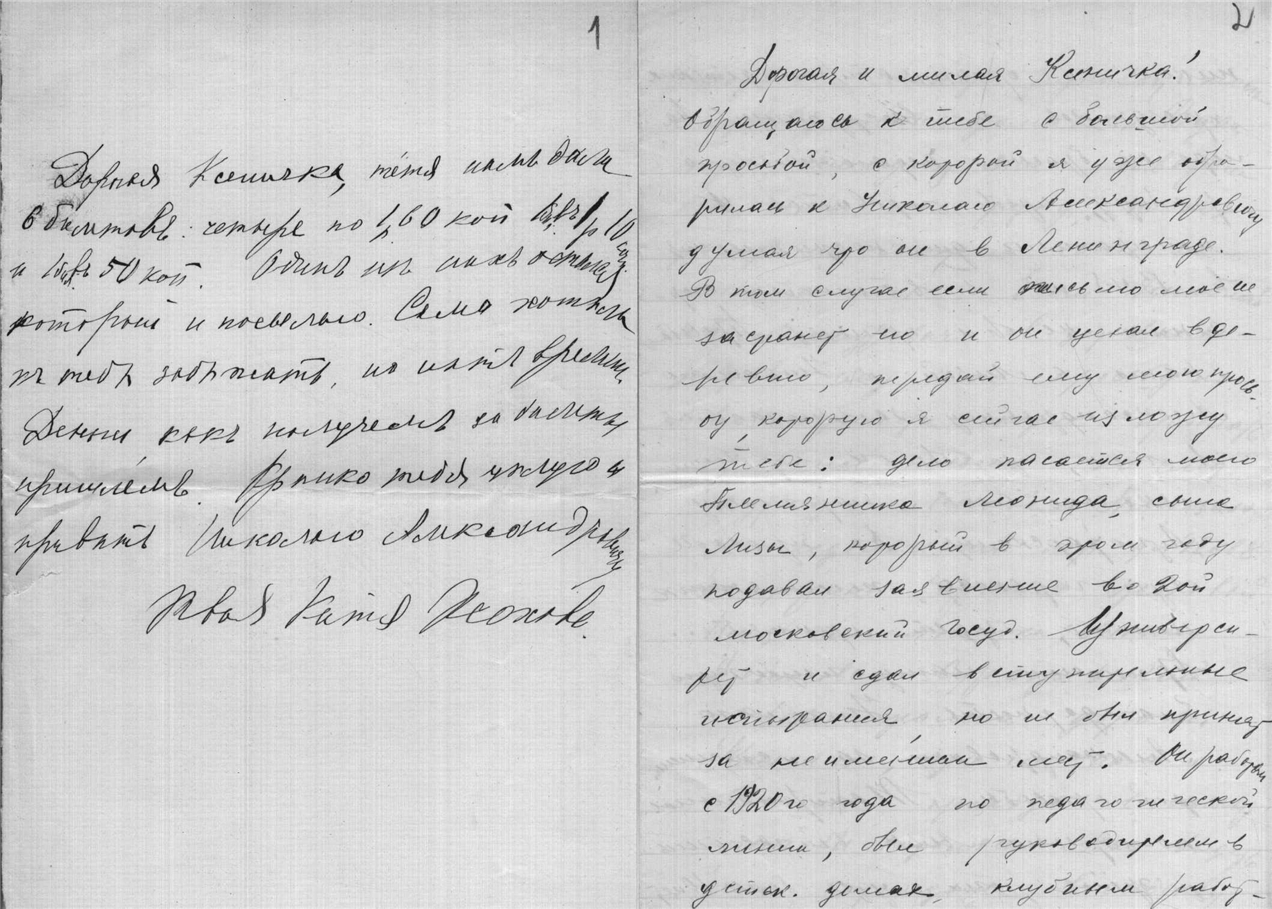 1
Дорогая Ксеничка, тётя намъ дала
6 билетовъ: четыре по 1,60 коп 1 р 10
и 50 коп. Одинъ изъ нихъ остался
который и посылаю. Сама хотѣла
къ тебѣ забѣжать, но нѣтъ времени.
Деньги, какъ получемъ за билеты
пришлемъ. Крѣпко тебя цѣлую и
привѣтъ Николаю Александровичу
Твоя Катя
2
Дорогая и милая Ксеничка!
Обращаюсь к тебе с большой
просьбой, с которой я уже обра-
тилась к Николаю Александровичу
думая что он в Ленинграде.
В том случае если письмо мое не
застанет его и он уехал в де-
ревню, передай ему мою прось-
бу, которую я сейчас изложу
тебе: дело касается моего
племянника Леонида, сына
Лизы, который в этом году
подавал заявление во 2ой
московский госуд. Универси-
тет и сдал вступительные
испытания, но не был принят
за неимением мест. Он работал
с 1920го года по педагогической
линии, был руководителем в
детск. домах, клубным работ-